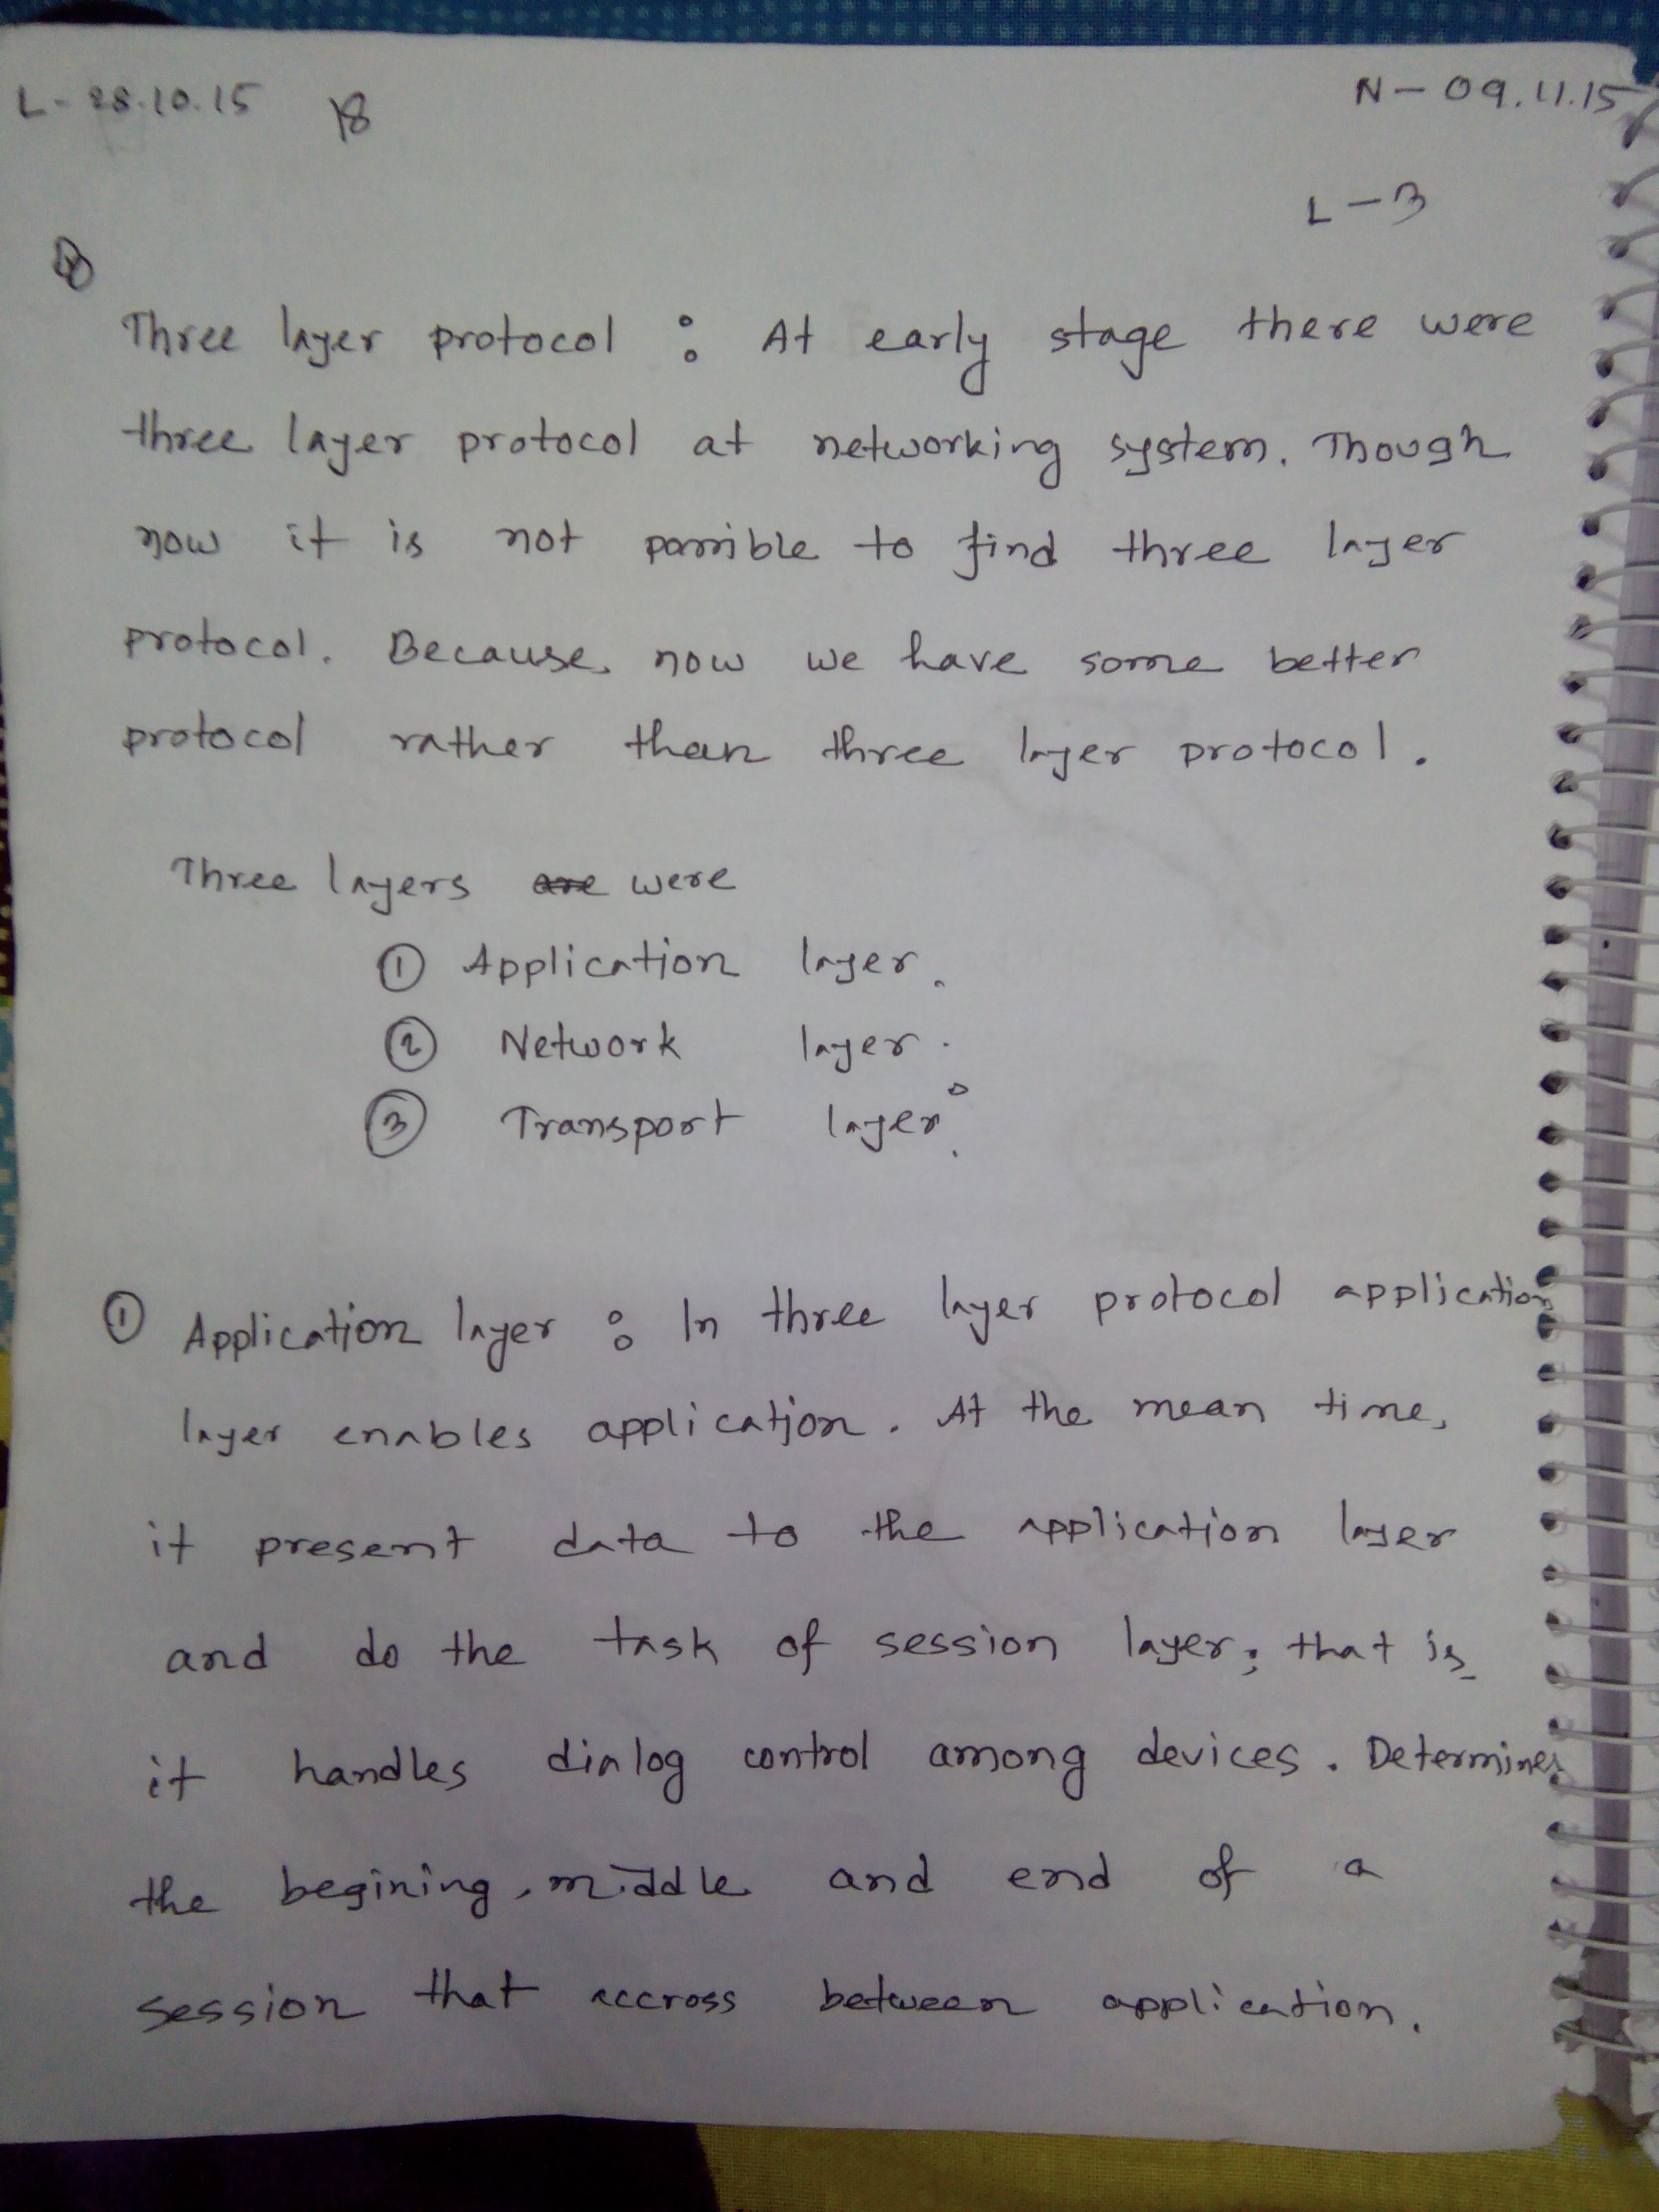 L - 28.10.15 18 N - 09.11.15
L - 3
Three layer protocol : At early stage there were
three layer protocol at networking system. Though
now it is not possible to find three layer
protocol. Because now we have some better
protocol rather than three layer protocol.
Three layers are were
① Application layer.
② Network layer.
③ Transport layer.
① Application layer : In three layer protocol application
layer enables application. At the mean time,
it present data to the application layer
and do the task of session layer; that is
it handles dialog control among devices. Determines
the begining, middle and end of a
session that accross between application.